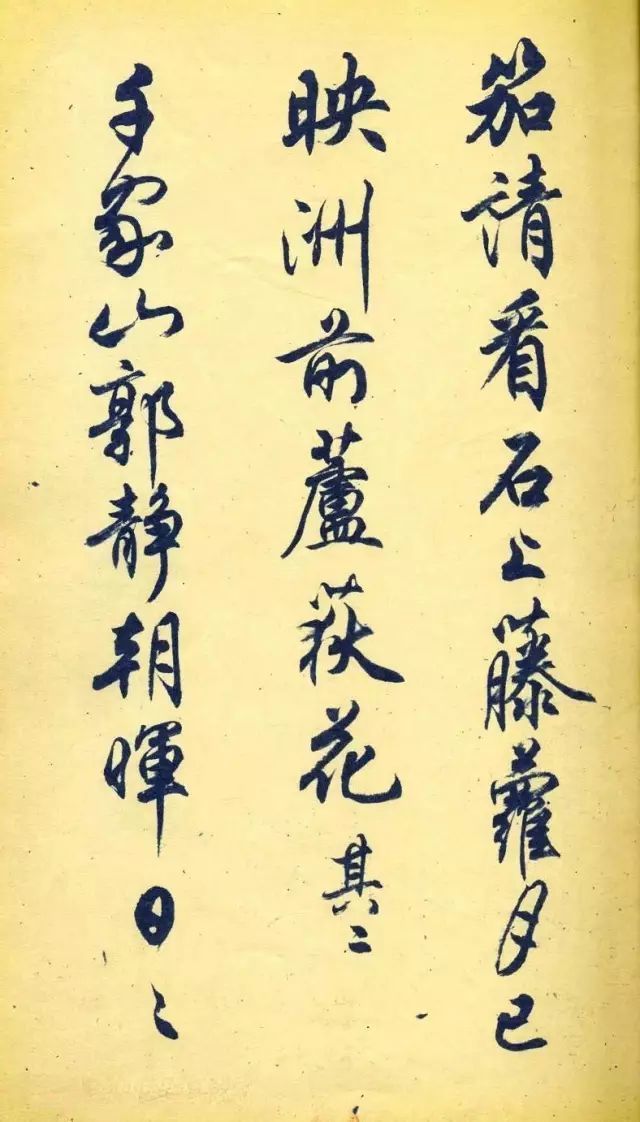 笳請看石上藤蘿月已
映洲前蘆荻花其二
千家山郭静朝暉日〻